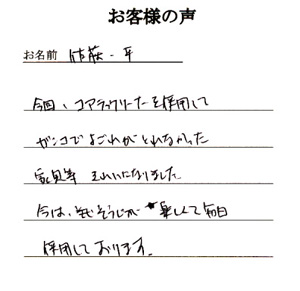 お客様の声
お名前 佐藤 一平
今回、コアラックリーナーを採用して
ガンコでよごれがとれなかった
家具等 きれいになりました
今は、そうじが楽しくて毎日
使用しております。